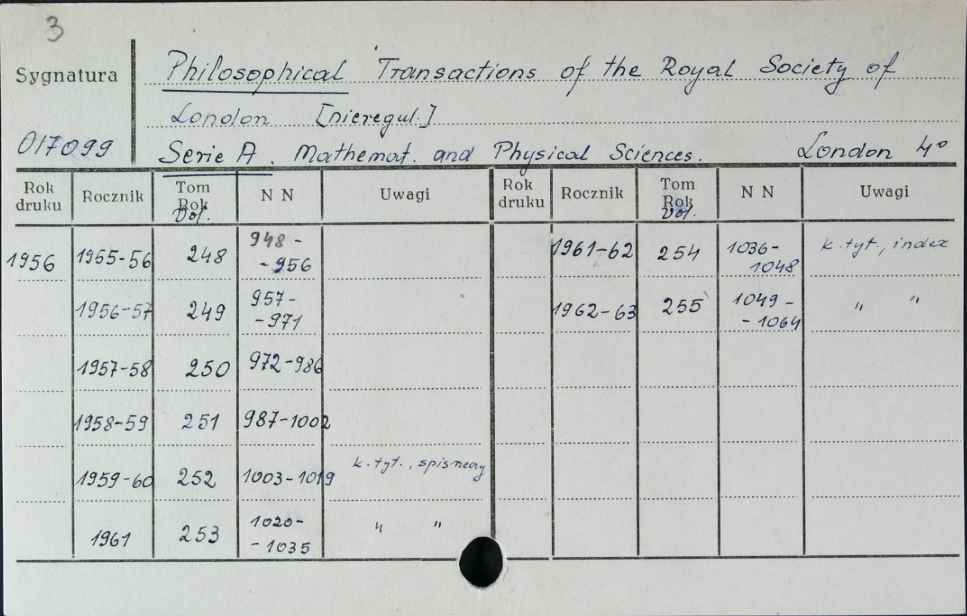 3
Sygnatura
Philosophical Transactions of the Royal Society of
London [nieregul.]
017099
Serie A. Mathemat. and Physical Sciences. London 4°
Rok druku Rocznik Tom Rok Vol. N N Uwagi Rok druku Rocznik Tom Rok Vol. N N Uwagi
1956 1955-56 248 948- -956 1961-62 254 1036- 1048 k. tyt., index
1956-57 249 957- -971 1962-63 255 1049- -1064 " "
1957-58 250 972-986
1958-59 251 987-1002
1959-60 252 1003-1019 k. tyt.,
1961 253 1020- -1035 " "